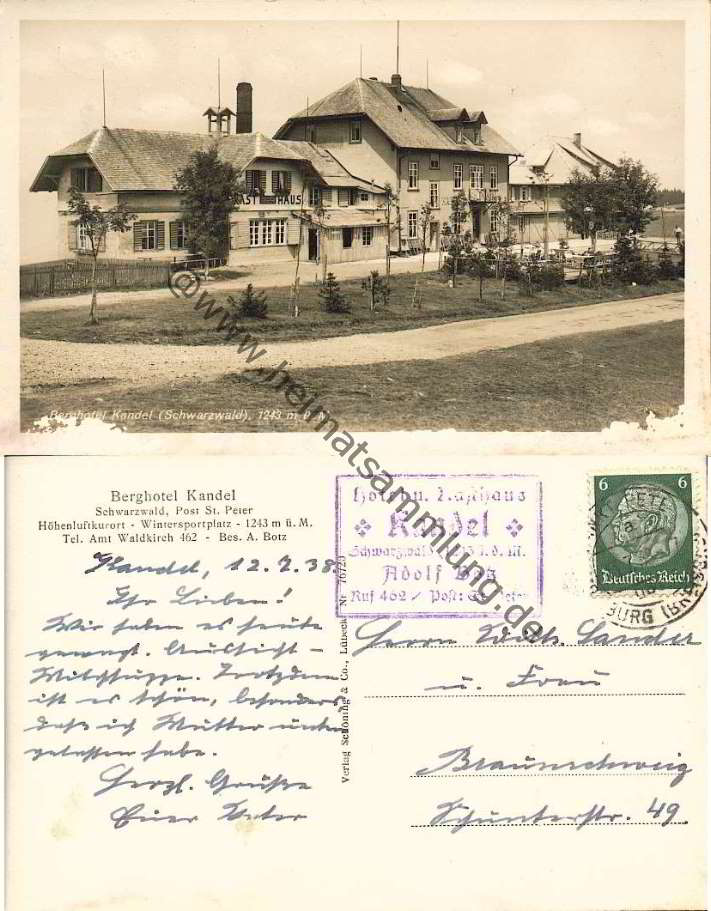 GAST HAUS
Berghotel Kandel (Schwarzwald), 1243 m ü. M.
@www.heimatsammlung.de
Berghotel Kandel
Schwarzwald, Post St. Peter
Höhenluftkurort - Wintersportplatz - 1243 m ü. M.
Tel. Amt Waldkirch 462 - Bes. A. Botz
Kandel, 12.7.38.
Ihr Lieben!
Wir haben es heute
gewagt. Aussicht -
Milchsuppe. Trotzdem
ist es schön, besonders
daß ich Mutter unten
gelassen habe.
Herzl. Grüße
Euer Peter
Verlag Schöning & Co., Lübeck Nr. 76720
Hotel u. Rasthaus
Kandel
Schwarzwald 1243 ü. d. M.
Adolf Botz
Ruf 462 / Post: St. Peter
6 6
Deutsches Reich
ST. PETER
BURG (BREISGAU)
Herrn Sander
u. Frau
Braunschweig
Schunterstr. 49